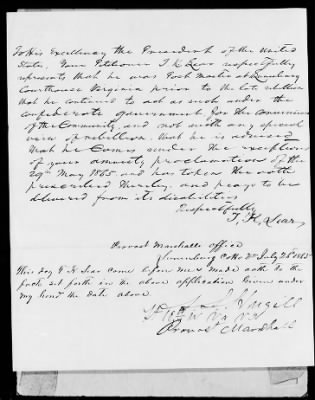 To His Excellency the President of the United
States, Your Petitioner T H Lear respectfully
represents that he was Post Master at Lunenburg
Courthouse Virginia prior to the late rebellion
that he continued to act as such under the
confederate government for the convenience
of the Community, and not with any special
view of rebellion. that he is advised
that he Comes under the exceptions
of your amnesty proclamation of the
29th May 1865 and has taken the oath
prescribed thereby, and prays to be
relieved from its disabilities
Respectfully
T, H, Lear,
Provost Marshalls Office
Lunenburg CoHo Va July 26th 1865
This day T H Lear came before me & made oath to the
facts set forth in the above application Given under
my hand the date above
Provost Marshall